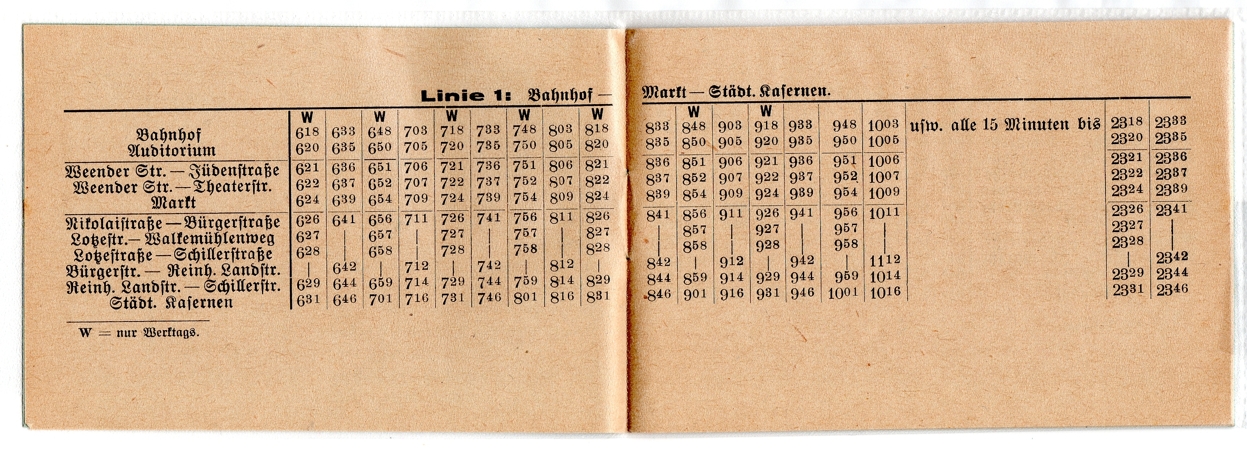 Linie 1: Bahnhof — Markt — Städt. Kasernen.
W W W W W W W
Bahnhof 618 633 648 703 718 733 748 803 818 833 848 903 918 933 948 1003 usw. alle 15 Minuten bis 2318 2333
Auditorium 620 635 650 705 720 735 750 805 820 835 850 905 920 935 950 1005 2320 2335
Weender Str. — Jüdenstraße 621 636 651 706 721 736 751 806 821 836 851 906 921 936 951 1006 2321 2336
Weender Str. — Theaterstr. 622 637 652 707 722 737 752 807 822 837 852 907 922 937 952 1007 2322 2337
Markt 624 639 654 709 724 739 754 809 824 839 854 909 924 939 954 1009 2324 2339
Nikolaistraße — Bürgerstraße 626 641 656 711 726 741 756 811 826 841 856 911 926 941 956 1011 2326 2341
Lotzestr. — Walkemühlenweg 627 | 657 | 727 | 757 | 827 | 857 | 927 | 957 | 2327 |
Lotzestraße — Schillerstraße 628 | 658 | 728 | 758 | 828 | 858 | 928 | 958 | 2328 |
Bürgerstr. — Reinh. Landstr. | 642 | 712 | 742 | 812 | 842 | 912 | 942 | 1112 | 2342
Reinh. Landstr. — Schillerstr. 629 644 659 714 729 744 759 814 829 844 859 914 929 944 959 1014 2329 2344
Städt. Kasernen 631 646 701 716 731 746 801 816 831 846 901 916 931 946 1001 1016 2331 2346
W = nur Werktags.